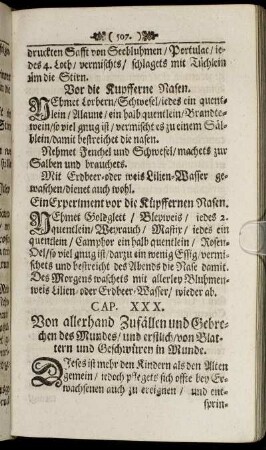 ( 507. )
druckten Safft von Seebluhmen / Portulac / ie-
des 4. Loth / vermischts / schlagets mit Tüchlein
üm die Stirn.
Vor die Kupfferne Nasen.
NEhmet Lorbern / Schwefel / iedes ein quent-
lein / Alaune / ein halb quentlein / Brandte-
wein / so viel gnug ist / vermischt es zu einem Säl-
blein / damit bestreichet die nasen.
Nehmet Fenchel und Schwefel / machets zur
Salben und brauchets.
Mit Erdbeer- oder weis Lilien-Wasser ge-
waschen / dienet auch wohl.
Ein Experiment vor die Kupffernen Nasen.
NEhmet Goldglett / Bleyweis / iedes 2.
quentlein / Weyrauch / Mastix / iedes ein
quentlein / Camphor ein halb quentlein / Rosen-
Oel / so viel gnug ist / darzu ein wenig Essig / vermi-
schets und bestreicht des Abends die Nase damit.
Des Morgens waschets mit allerley Bluhmen-
weis Lilien- oder Erdbeer-Wasser / wieder ab.
CAP. XXX.
Von allerhand Zufällen und Gebre-
chen des Mundes / und erstlich / von Blat-
tern und Geschwüren in Munde.
DIeses ist mehr den Kindern als den Alten
gemein / iedoch pfleget sich offte bey Er-
wachsenen auch zu ereignen / und ent-
sprin-